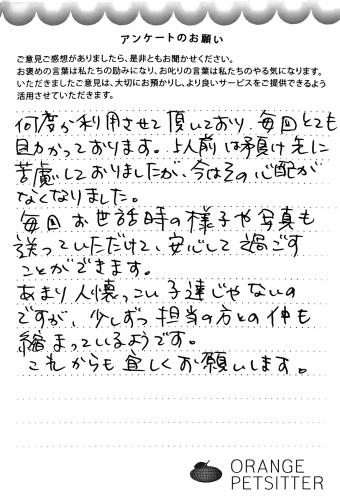 アンケートのお願い
ご意見ご感想がありましたら、是非ともお聞かせください。
お褒めの言葉は私たちの励みになり、お叱りの言葉は私たちのやる気になります。
いただきましたご意見は、大切にお預かりし、より良いサービスをご提供できるよう
活用させていただきます。
何度か利用させて頂いており、毎回とても
助かっております。以前は預け先に
苦慮しておりましたが、今はその心配が
なくなりました。
毎回お世話時の様子や写真も
送っていただけて、安心して過ごす
ことができます。
あまり人懐っこい子達じゃないの
ですが、少しずつ担当の方との仲も
縮まっているようです。
これからも宜しくお願いします。
ORANGE
PETSITTER